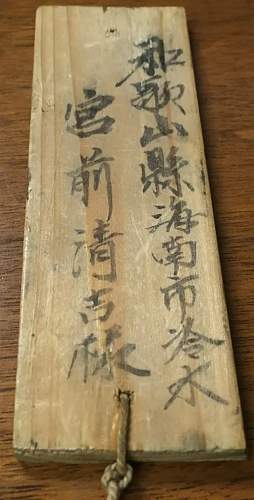 和歌山縣海南市冷水
宮前清吉様